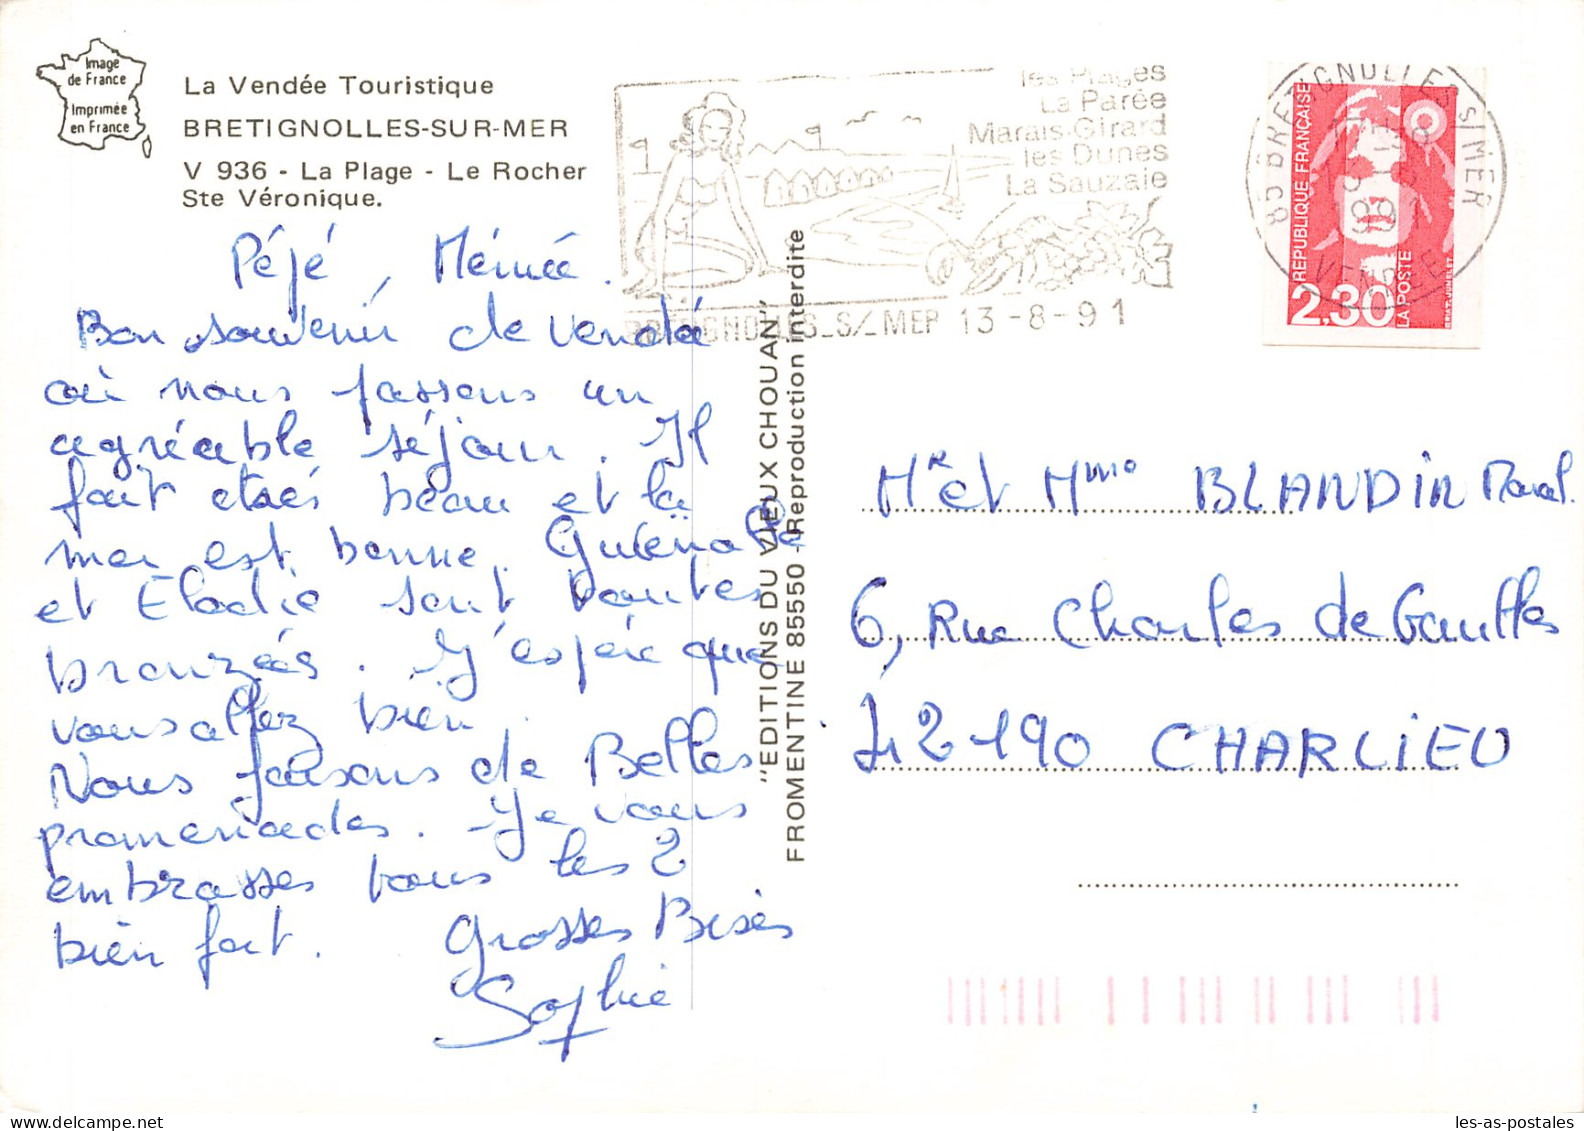 Image
de France
Imprimée
en France
La Vendée Touristique
BRETIGNOLLES-SUR-MER
V 936 - La Plage - Le Rocher
Ste Véronique.
Pépé, Mémé.
Bon souvenir de vendée
où nous passons un
agréable séjour. Il
fait très beau et la
mer est bonne. Gwénaëlle
et Elodie sont toutes
bronzées. J'espère que
vous allez bien.
Nous faisons de Belles
promenades. Je vous
embrasses tous les 2
bien fort. Grosses Bises
Sophie
"EDITIONS DU VIEUX CHOUAN"
FROMENTINE 85550 - Reproduction interdite
les Plages
La Parée
Marais-Girard
les Dunes
La Sauzaie
BRETIGNOLLES_S/_MER 13-8-91
85 BRETIGNOLLES S/MER
VENDEE
REPUBLIQUE FRANÇAISE
2,30
LA POSTE
Mr et Mme BLANDIN
6, Rue Charles de Gaulles
42190 CHARLIEU
les-as-postales